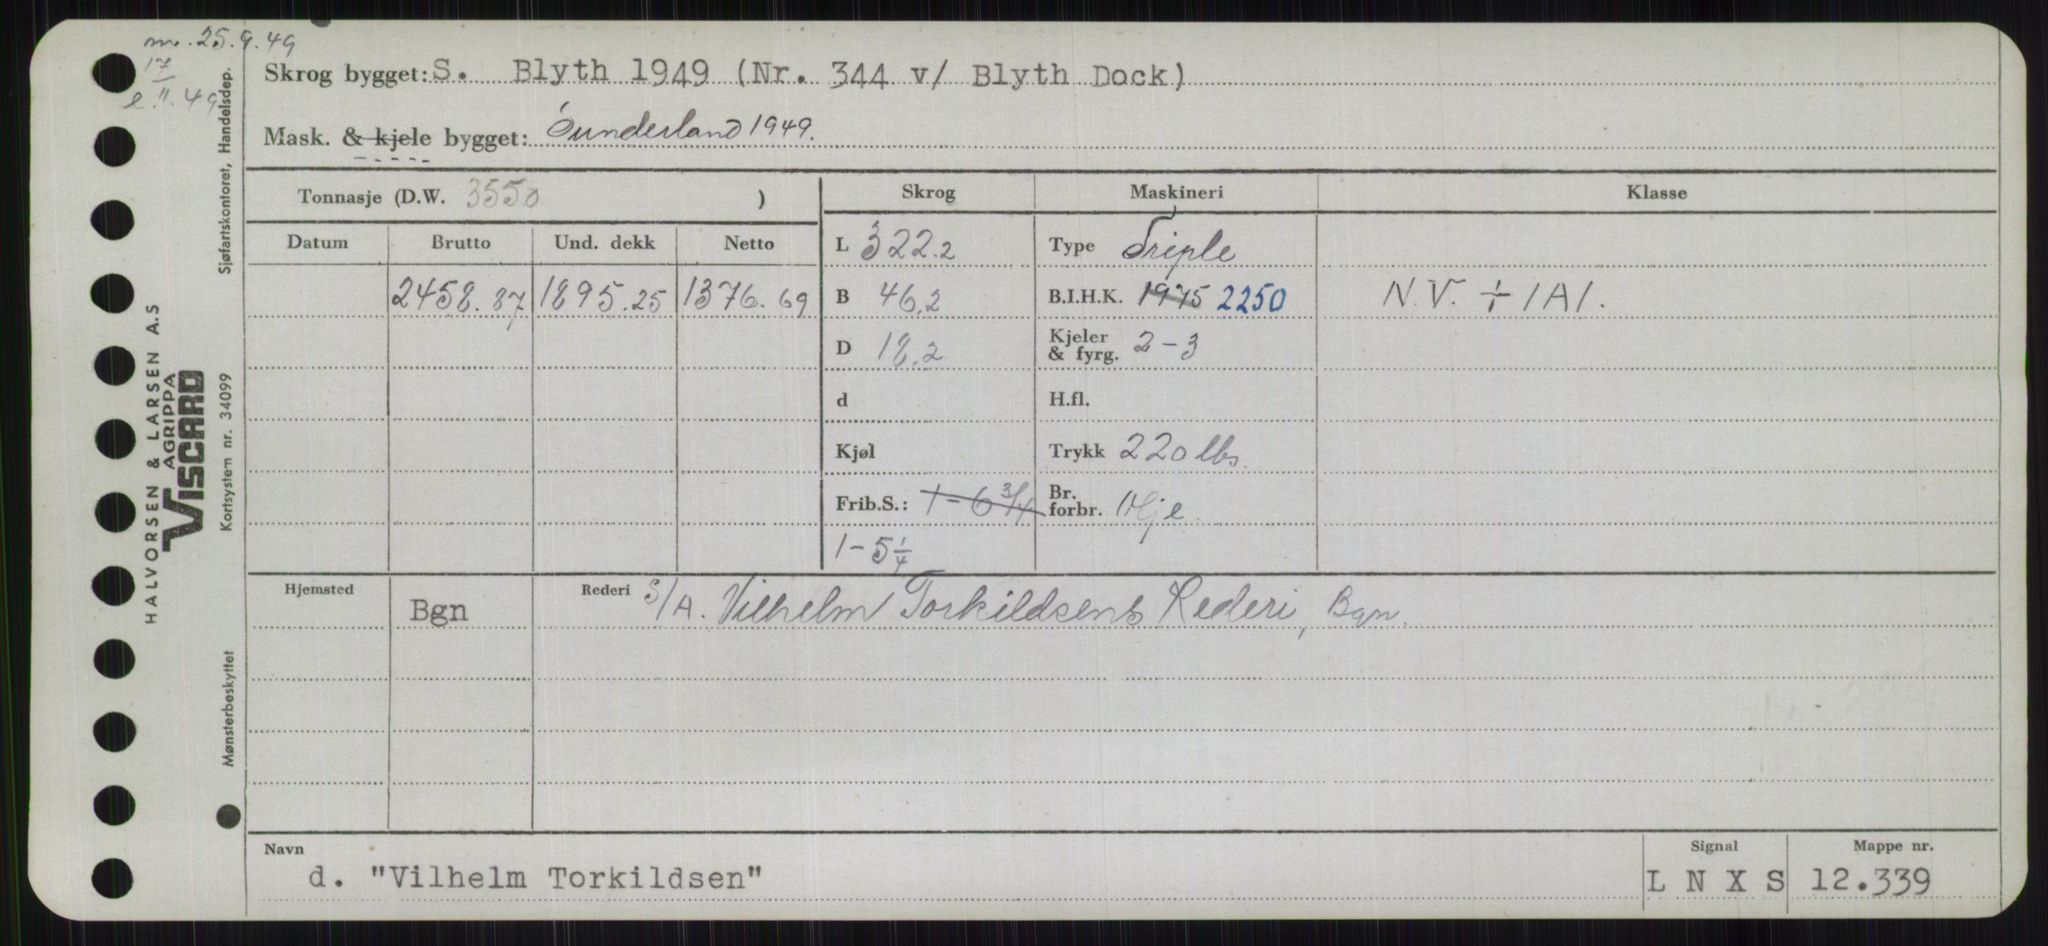 m. 25.9.49
17
e.11.49
Skrog bygget: S. Blyth 1949 (Nr. 344 v/ Blyth Dock)
Mask. & kjele bygget: Sunderland 1949.
Tonnasje (D.W. 3550 )
Skrog Maskineri Klasse
Datum Brutto Und. dekk Netto
L 322.2 Type Triple
2458.87 1895.25 1376.69
B 46.2 B.I.H.K. 1975 2250 N.V. ⊹ 1A1.
D 18.2 Kjeler & fyrg. 2-3
d H.fl.
Kjøl Trykk 220 lbs.
Frib.S.: 1-6 3/4 Br. forbr. Olje
1-5 1/4
Hjemsted Bgn Rederi S/A. Vilhelm Torkildsens Rederi, Bgn.
Navn Signal Mappe nr.
d. "Vilhelm Torkildsen" L N X S 12.339
HALVORSEN & LARSEN A.S
AGRIPPA
VISCARD
Mønsterbeskyttet Kortsystem nr. 34099 Sjøfartskontoret, Handelsdep.